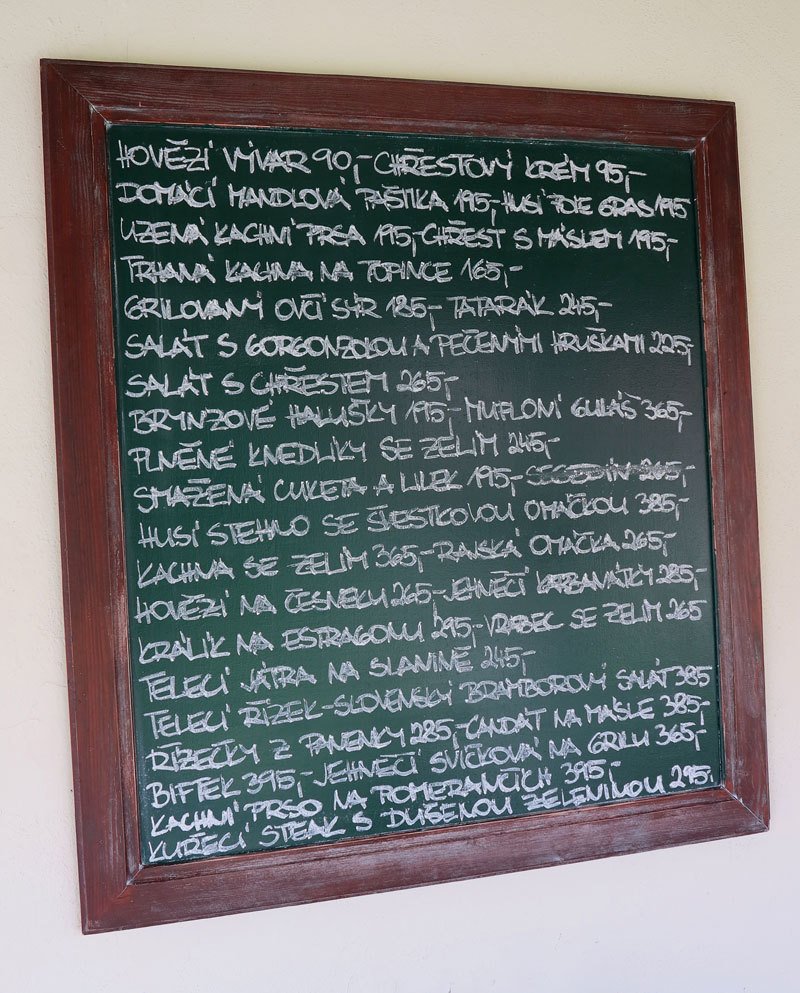 HOVĚZÍ VÝVAR 90,- CHŘESTOVÝ KRÉM 95,-
DOMÁCÍ MANDLOVÁ PAŠTIKA 195,- HUSÍ FOIE GRAS 195
UZENÁ KACHNÍ PRSA 195,- CHŘEST S MÁSLEM 195,-
TRHANÁ KACHNA NA TOPINCE 165,-
GRILOVANÝ OVČÍ SÝR 185,- TATARÁK 245,-
SALÁT S GORGONZOLOU A PEČENÝMI HRUŠKAMI 225,-
SALÁT S CHŘESTEM 265,-
BRYNZOVÉ HALUŠKY 195,- MUFLONÍ GULÁŠ 365,-
PLNĚNÉ KNEDLÍKY SE ZELÍM 245,-
SMAŽENÁ CUKETA A LILEK 195,- SEGEDÍN 265,-
HUSÍ STEHNO SE ŠVESTKOVOU OMÁČKOU 385,-
KACHNA SE ZELÍM 365,- RAJSKÁ OMÁČKA 265,-
HOVĚZÍ NA ČESNEKU 265,- JEHNĚČÍ KARBANÁTKY 285,-
KRÁLÍK NA ESTRAGONU 295,- VRABEC SE ZELÍM 265
TELECÍ JÁTRA NA SLANINĚ 245,-
TELECÍ ŘÍZEK-SLOVENSKÝ BRAMBOROVÝ SALÁT 385
ŘÍZEČKY Z PANENKY 285,- CANDÁT NA MÁSLE 385,-
BIFTEK 395,- JEHNĚČÍ SVÍČKOVÁ NA GRILU 365,-
KACHNÍ PRSO NA POMERANČÍCH 395,-
KUŘECÍ STEAK S DUŠENOU ZELENINOU 295,-